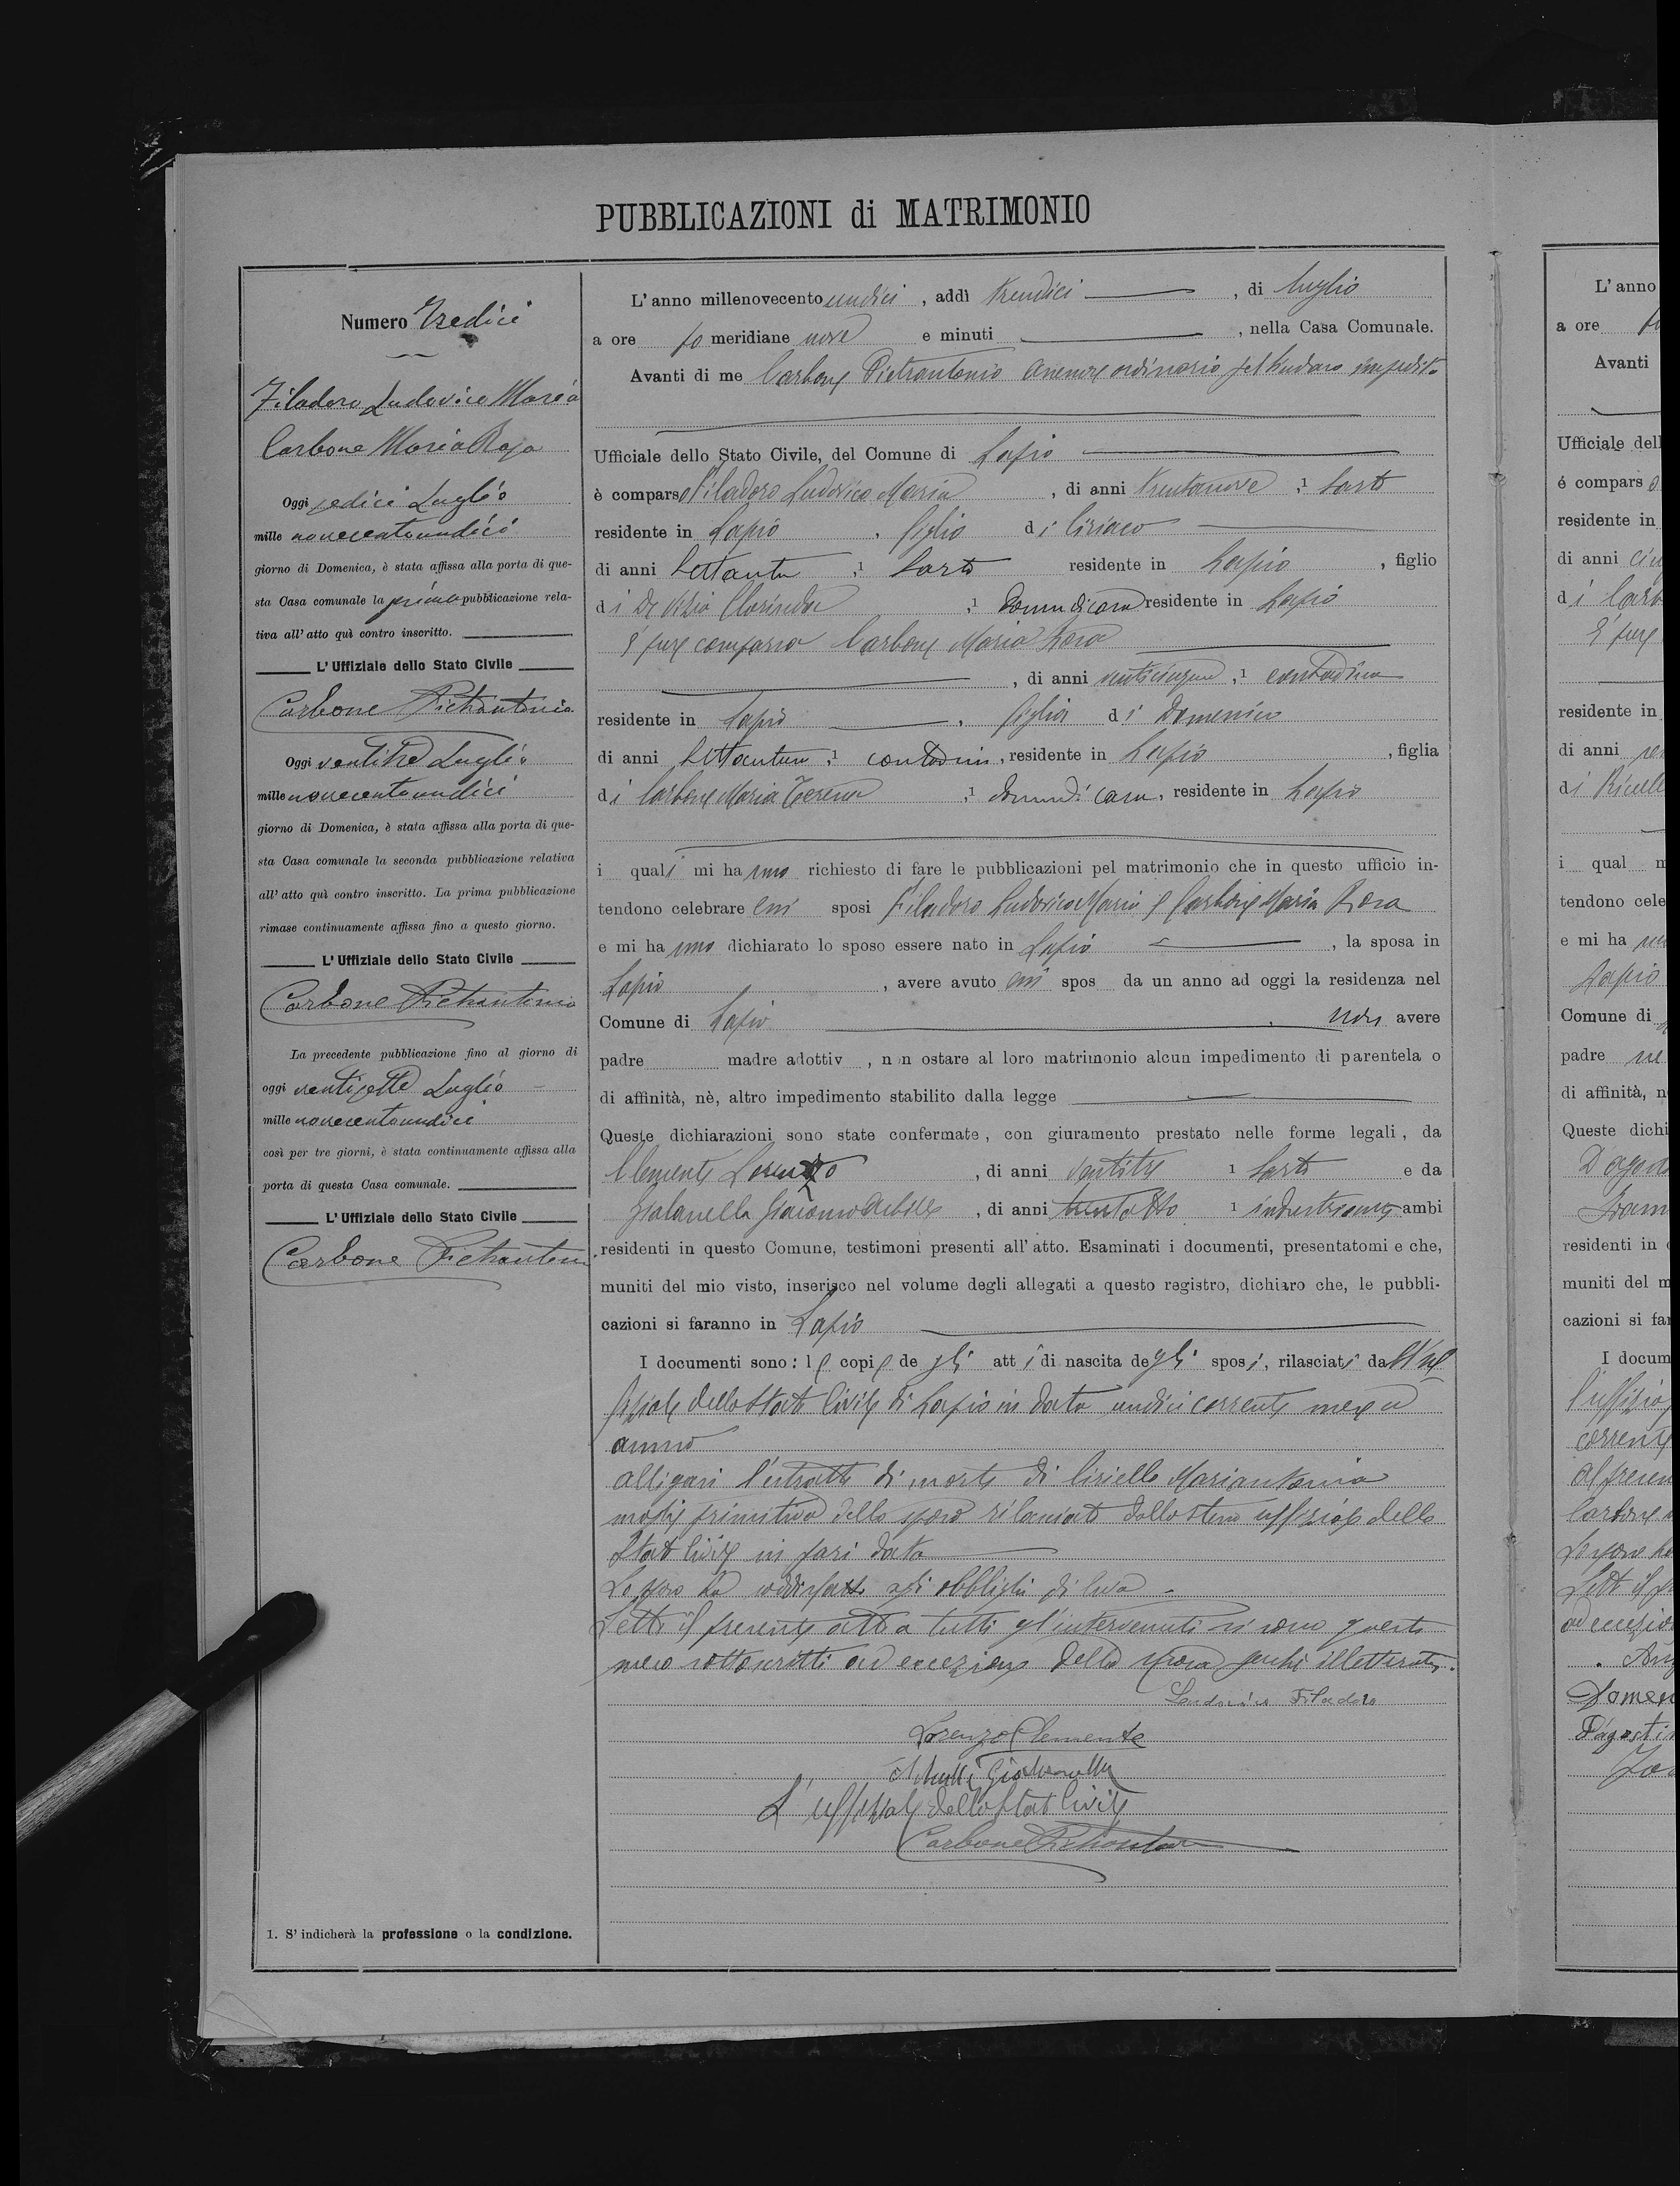 PUBBLICAZIONI di MATRIMONIO
Numero Tredici
Filadoro Ludovico Maria
Carbone Maria Rosa
Oggi sedici Luglio
mille novecentoundici
giorno di Domenica, è stata affissa alla porta di que-
sta Casa comunale la prima pubblicazione rela-
tiva all' atto quì contro inscritto.
L' Uffiziale dello Stato Civile
Carbone Pietrantonio
Oggi ventitre Luglio
mille novecentoundici
giorno di Domenica, è stata affissa alla porta di que-
sta Casa comunale la seconda pubblicazione relativa
all' atto quì contro inscritto. La prima pubblicazione
rimase continuamente affissa fino a questo giorno.
L' Uffiziale dello Stato Civile
Carbone Pietrantonio
La precedente pubblicazione fino al giorno di
oggi ventisette Luglio
mille novecentoundici
così per tre giorni, è stata continuamente affissa alla
porta di questa Casa comunale.
L' Uffiziale dello Stato Civile
Carbone Pietrantonio
1. S' indicherà la professione o la condizione.
L' anno millenovecento undici , addì , di luglio
a ore meridiane nove e minuti , nella Casa Comunale.
Avanti di me Carbone Pietrantonio ordinario impedito
Ufficiale dello Stato Civile, del Comune di Lapio
è comparso Filadoro Ludovico Maria , di anni trentanove , 1 sarto
residente in Lapio , figlio di Ciriaco
di anni settanta , 1 sarto residente in Lapio , figlio
di De Vizio Clorinda , 1 donna di casa residente in Lapio
È pure comparsa Carbone Maria Rosa
, di anni venticinque , 1 contadina
residente in Lapio , figlia di Domenico
di anni , 1 contadino , residente in Lapio , figlia
di Carbone Maria Teresa , 1 donna di casa , residente in Lapio
i quali mi hanno richiesto di fare le pubblicazioni pel matrimonio che in questo ufficio in-
tendono celebrare essi sposi Filadoro Ludovico Maria e Carbone Maria Rosa
e mi hanno dichiarato lo sposo essere nato in Lapio , la sposa in
Lapio , avere avuto essi spos da un anno ad oggi la residenza nel
Comune di Lapio , non avere
padre madre adottiv , n n ostare al loro matrimonio alcun impedimento di parentela o
di affinità, nè, altro impedimento stabilito dalla legge
Queste dichiarazioni sono state confermate, con giuramento prestato nelle forme legali, da
Clemente Lorenzo , di anni ventitre 1 sarto e da
Gialanella Giacomo Achille , di anni trentotto 1 ambi
residenti in questo Comune, testimoni presenti all' atto. Esaminati i documenti, presentatomi e che,
muniti del mio visto, inserisco nel volume degli allegati a questo registro, dichiaro che, le pubbli-
cazioni si faranno in Lapio
I documenti sono: le copie degli atti di nascita degli sposi, rilasciati dall'uf
fiziale dello Stato Civile di Lapio in data undici corrente mese ed
anno
Alligasi l'estratto di morte di Ciriello Mariantonia
moglie primitiva dello sposo rilasciato dallo stesso uffiziale dello
Stato Civile in pari data
Lo sposo ha soddisfatto agli obblighi di leva
Letto il presente atto a tutti gl'intervenuti si sono questi
meco sottoscritti ad eccezione della sposa perchè illetterata.
Ludovico Filadoro
Lorenzo Clemente
Achille Gialanella
L' uffiziale dello Stato Civile
Carbone Pietrantonio
L' anno
a ore
Avanti
Ufficiale dell
é compars o
residente in
di anni
di Carb
È pure
residente in
di anni
di
i qual m
tendono cele
e mi ha
Lapio
Comune di
padre ne
di affinità, n
Queste dichi
D'agosti
residenti in
muniti del m
cazioni si far
I docum
l'uffizia
corrente
al presen
Carbone
Lo sposo ha
Letto il pr
ad eccezio
Domen
D'agostin